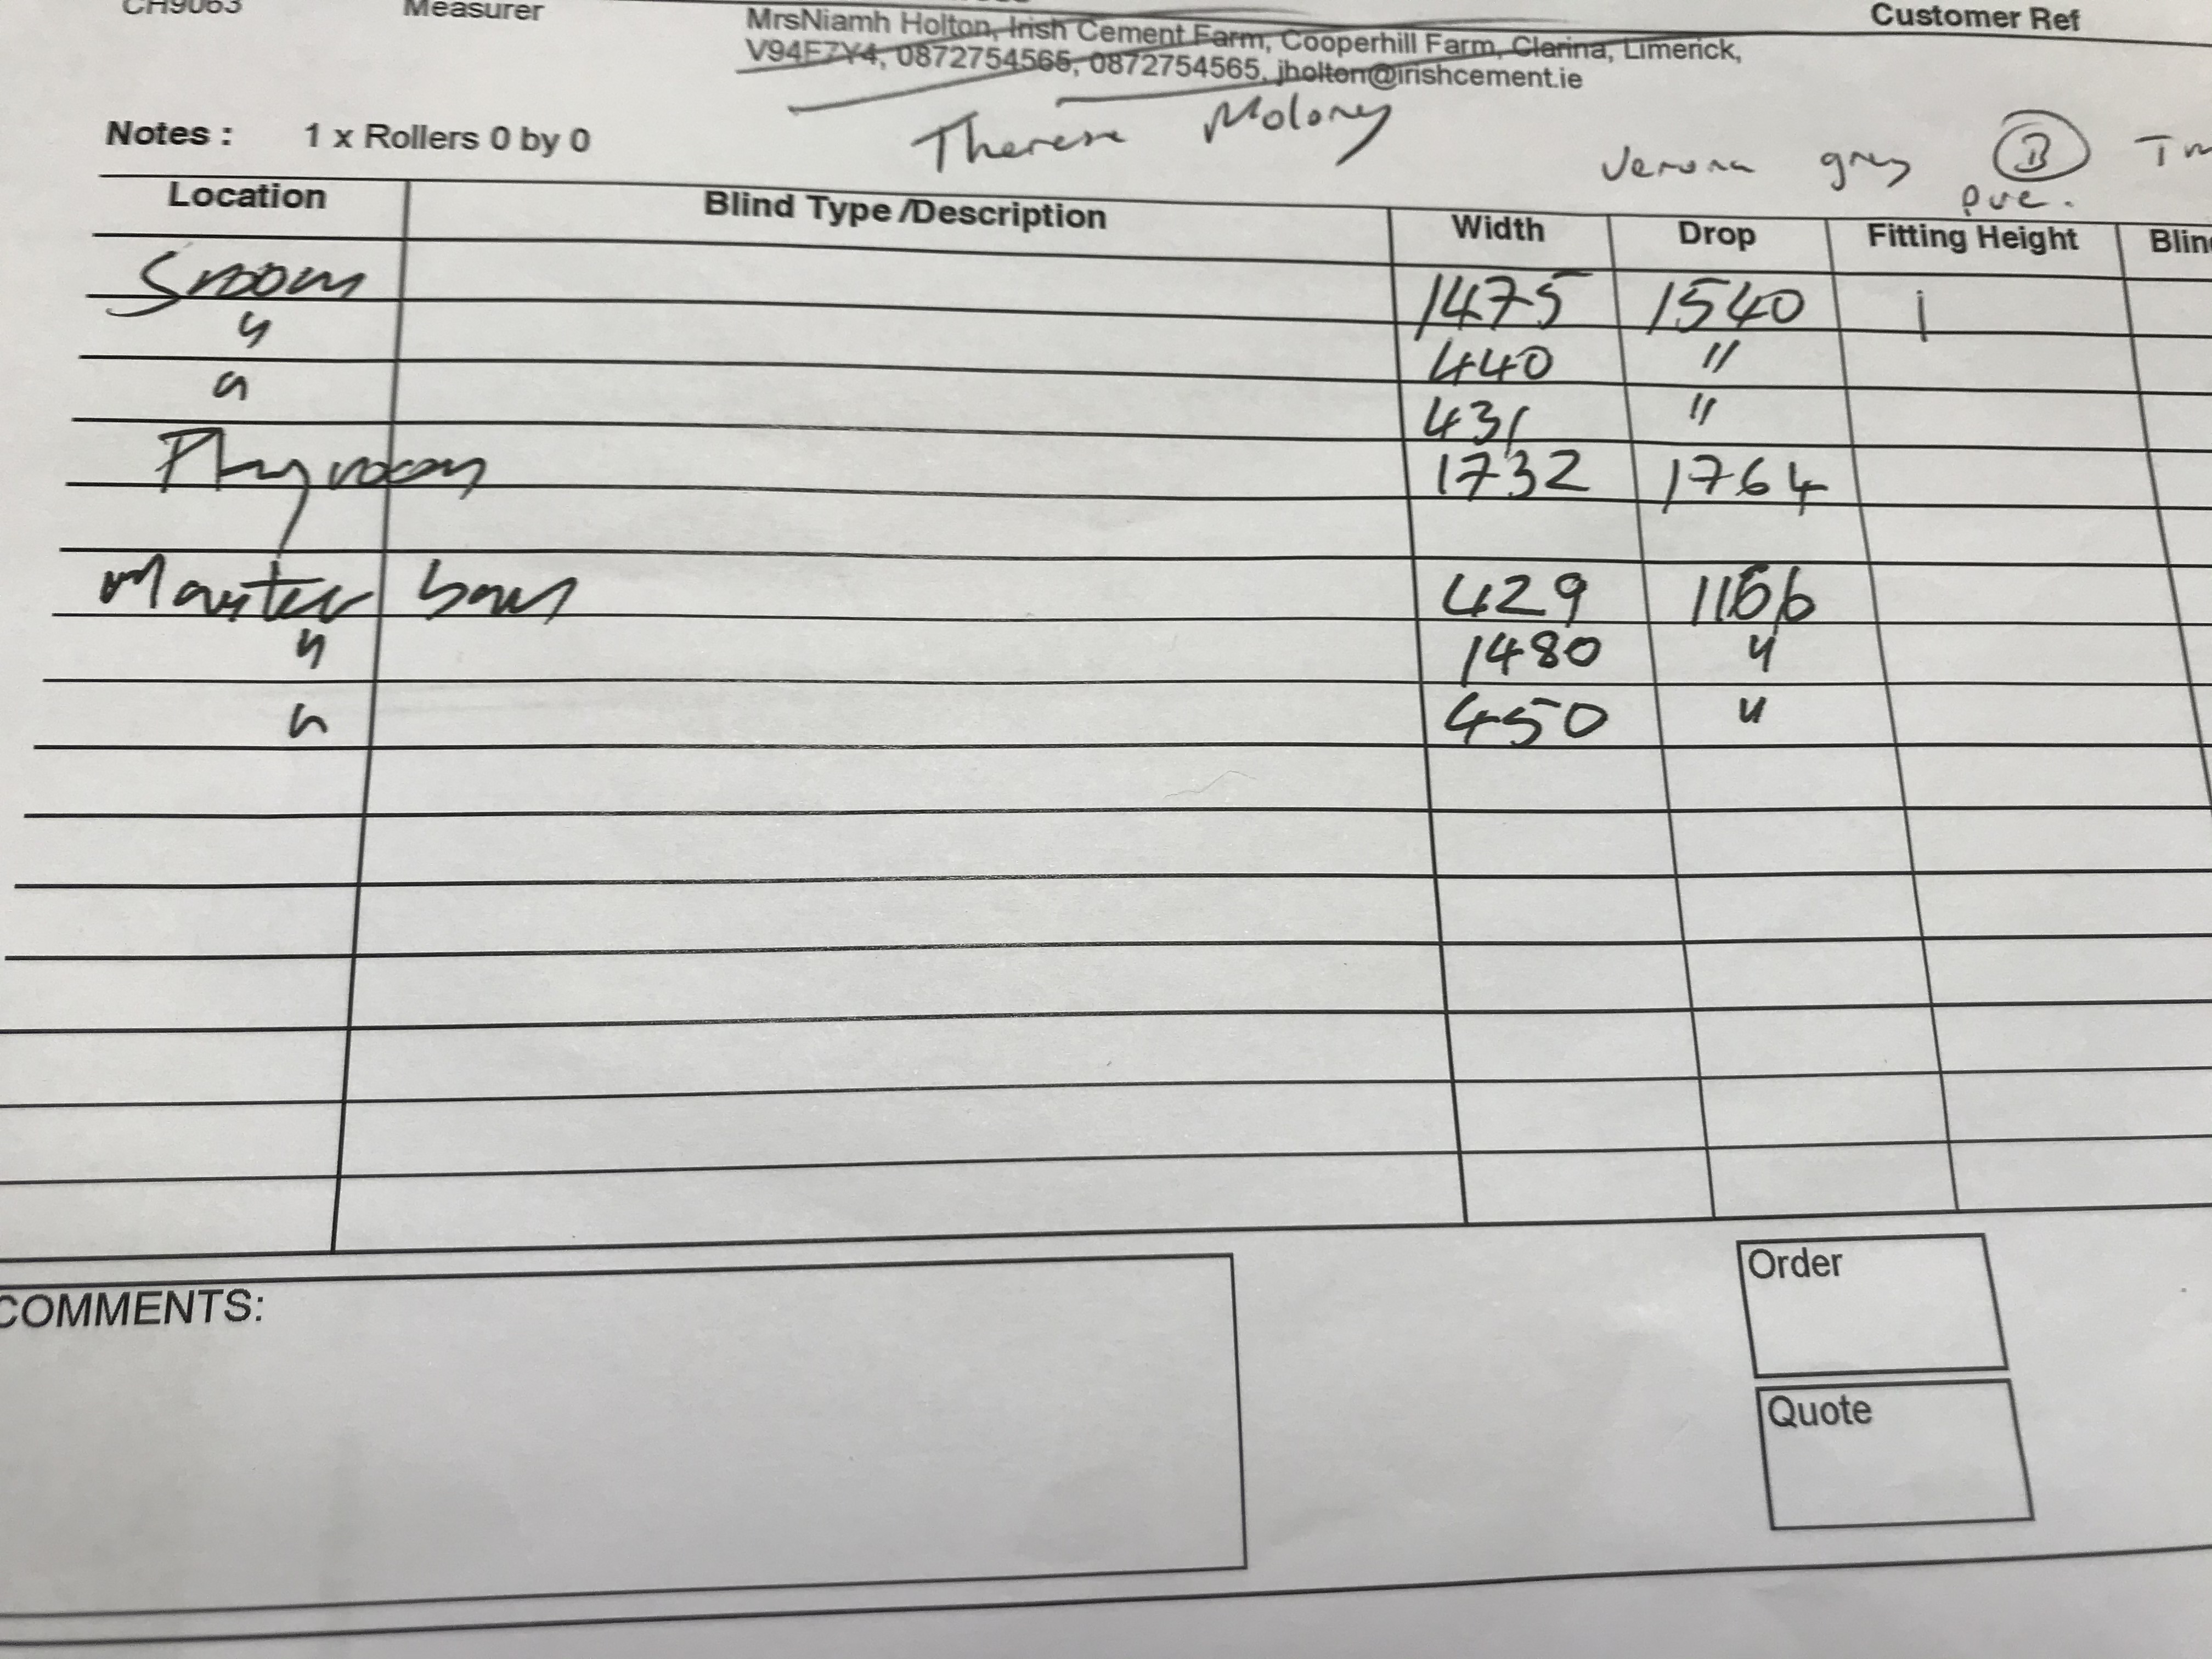 CH9063 Measurer Customer Ref
MrsNiamh Holton, Irish Cement Farm, Cooperhill Farm, Clarina, Limerick,
V94F7Y4, 0872754565, 0872754565, jholton@irishcement.ie
Therese Molony
Notes : 1 x Rollers 0 by 0
Verona grey B
Location Blind Type /Description Width Drop Fitting Height Blin
Sroom 1475 1540 1
" 440 "
" 431 "
Playroom 1732 1764
Master 429
" 1480 "
" 450 "
COMMENTS:
Order
Quote